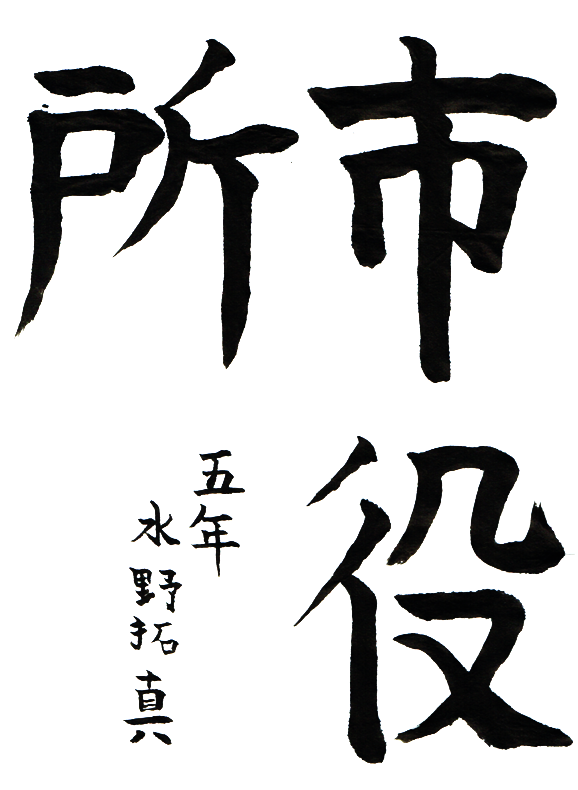 市役
所
五年
水野拓真